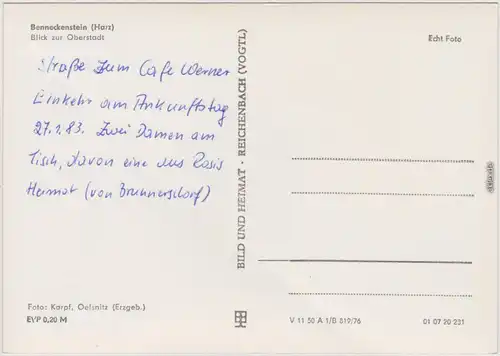 Benneckenstein (Harz)
Blick zur Oberstadt
Echt Foto
Straße zum Cafe Werner
Einkehr am Ankunftstag
27.1.83. Zwei Damen am
Tisch, davon eine aus Rosis
Heimat (von Brunnersdorf)
BILD UND HEIMAT · REICHENBACH (VOGTL)
Foto: Karpf, Oelsnitz (Erzgeb.)
EVP 0,20 M
V 11 50 A 1/B 819/76
01 07 20 231